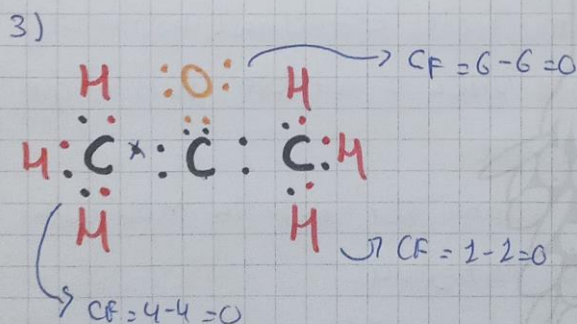 3)
H :O: H
CF = 6-6=0
H : C × : C : C : H
H H
CF = 1-1=0
CF = 4-4 = 0